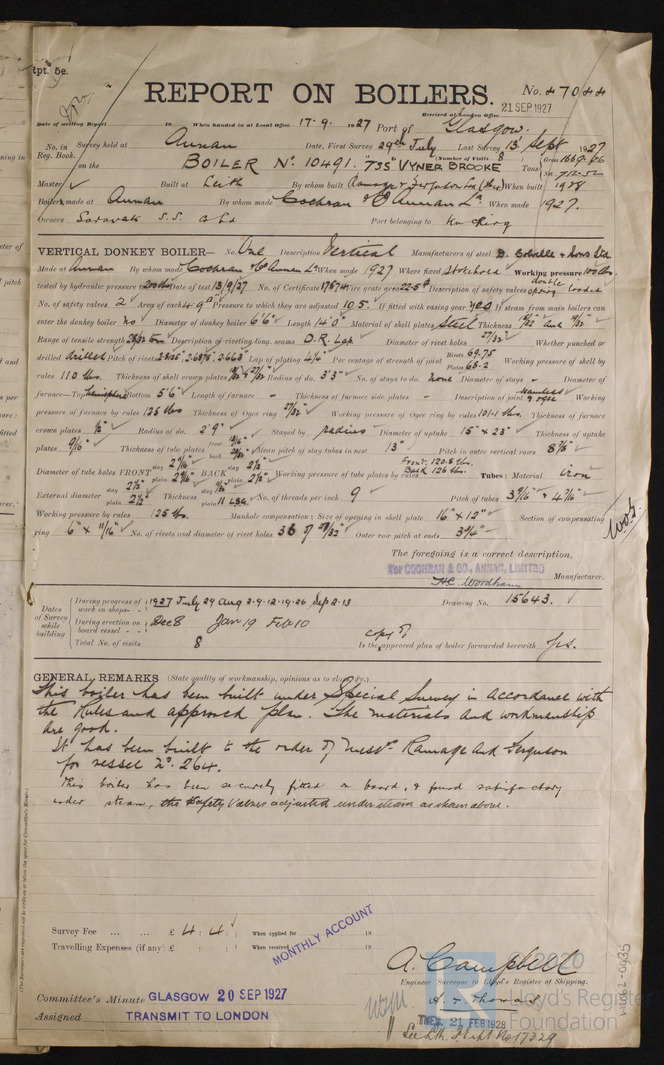 Rpt. 5e.
REPORT ON BOILERS.
No. 47044
21 SEP 1927
Received at London Office
Date of writing Report 19 When handed in at Local Office 17·9· 1927 Port of Glasgow.
No. in Reg. Book. Survey held at Annan Date, First Survey 29th July Last Survey 13 Sept 1927
on the BOILER No. 10491. "TSS" VYNER BROOKE (Number of Visits 8) Tons Gross 1669·76
Master Built at Leith By whom built Ramage & Ferguson When built 1928
Boilers made at Annan By whom made Cochran & Co Annan Ld. When made 1927.
Owners Sarawak S.S. Co Ld Port belonging to Kuching
VERTICAL DONKEY BOILER— No. One Description Vertical Manufacturers of steel D. Colville & Sons Ltd.
Made at Annan By whom made Cochran & Co Annan Ld. When made 1927 Where fixed Stokehold Working pressure 100 lbs.
tested by hydraulic pressure 200 lbs Date of test 13/9/27 No. of Certificate 17674 Fire grate area 22·5 Description of safety valves double spring loaded
No. of safety valves 2 Area of each 4·9 Pressure to which they are adjusted 105. If fitted with easing gear yes If steam from main boilers can
enter the donkey boiler no Diameter of donkey boiler 6'6" Length 14'0" Material of shell plates steel Thickness
Range of tensile strength Description of riveting long. seams D.R. Lap Diameter of rivet holes 27/32" Whether punched or
drilled drilled Pitch of rivets Lap of plating 4 1/8" Per centage of strength of joint Rivets 69.75 Plates 65.2 Working pressure of shell by
rules 110 lbs. Thickness of shell crown plates Radius of do. 3'3" No. of stays to do. none Diameter of stays - Diameter of
furnace—Top Bottom 5'6" Length of furnace - Thickness of furnace side plates - Description of joint seamless & ogee Working
pressure of furnace by rules 125 lbs. Thickness of Ogee ring 27/32" Working pressure of Ogee ring by rules 101·1 lbs. Thickness of furnace
crown plates 1/2" Radius of do. 2'9" Stayed by radius Diameter of uptake 15" x 23" Thickness of uptake
plates 9/16" Thickness of tube plates front back Mean pitch of stay tubes in nest 13" Pitch in outer vertical rows 8 7/8"
Diameter of tube holes FRONT stay 2 9/16" plain 2 9/16" BACK stay 2 1/2" plain 2 1/2" Working pressure of tube plates by rules Front. 120.8 lbs. Back 126 lbs. Tubes: Material iron
External diameter stay 2 1/2" plain 2 1/2" Thickness plain 11 LSG. No. of threads per inch 9 Pitch of tubes 3 9/16" x 4 7/16"
Working pressure by rules 125 lbs. Manhole compensation: Size of opening in shell plate 16" x 12" Section of compensating
ring 6" x 11/16" No. of rivets and diameter of rivet holes 36 of 29/32" Outer row pitch at ends 3 3/4"
The foregoing is a correct description,
For COCHRAN & CO., ANNAN, LIMITED
H.C. Woodham Manufacturer.
Dates of Survey while building
During progress of work in shops- - 1927 July 29 Aug 2·9·12·19·26 Sep 2·13
During erection on board vessel - - Dec 8 Jan 19 Feb 10
Total No. of visits 8
Drawing No. 15643.
Is the copy of approved plan of boiler forwarded herewith yes.
GENERAL REMARKS (State quality of workmanship, opinions as to class, &c.)
This boiler has been built under Special Survey in accordance with
the Rules and approved plan. The materials and workmanship
are good.
It has been built to the order of Messrs. Ramage and Ferguson
for vessel No. 264.
This boiler has been securely fitted on board, & found satisfactory
under steam, the safety valves adjusted under steam as shown above.
Survey Fee ... ... £ 4 : 4 : When applied for 19
Travelling Expenses (if any) £ : : When received 19
MONTHLY ACCOUNT
A. Campbell
Engineer Surveyor to Lloyd's Register of Shipping.
Committee's Minute GLASGOW 20 SEP 1927
Assigned TRANSMIT TO LONDON
TUES. 21 FEB 1928
See Lth. Rpt No 17329
© 2020
Lloyd's Register
Foundation